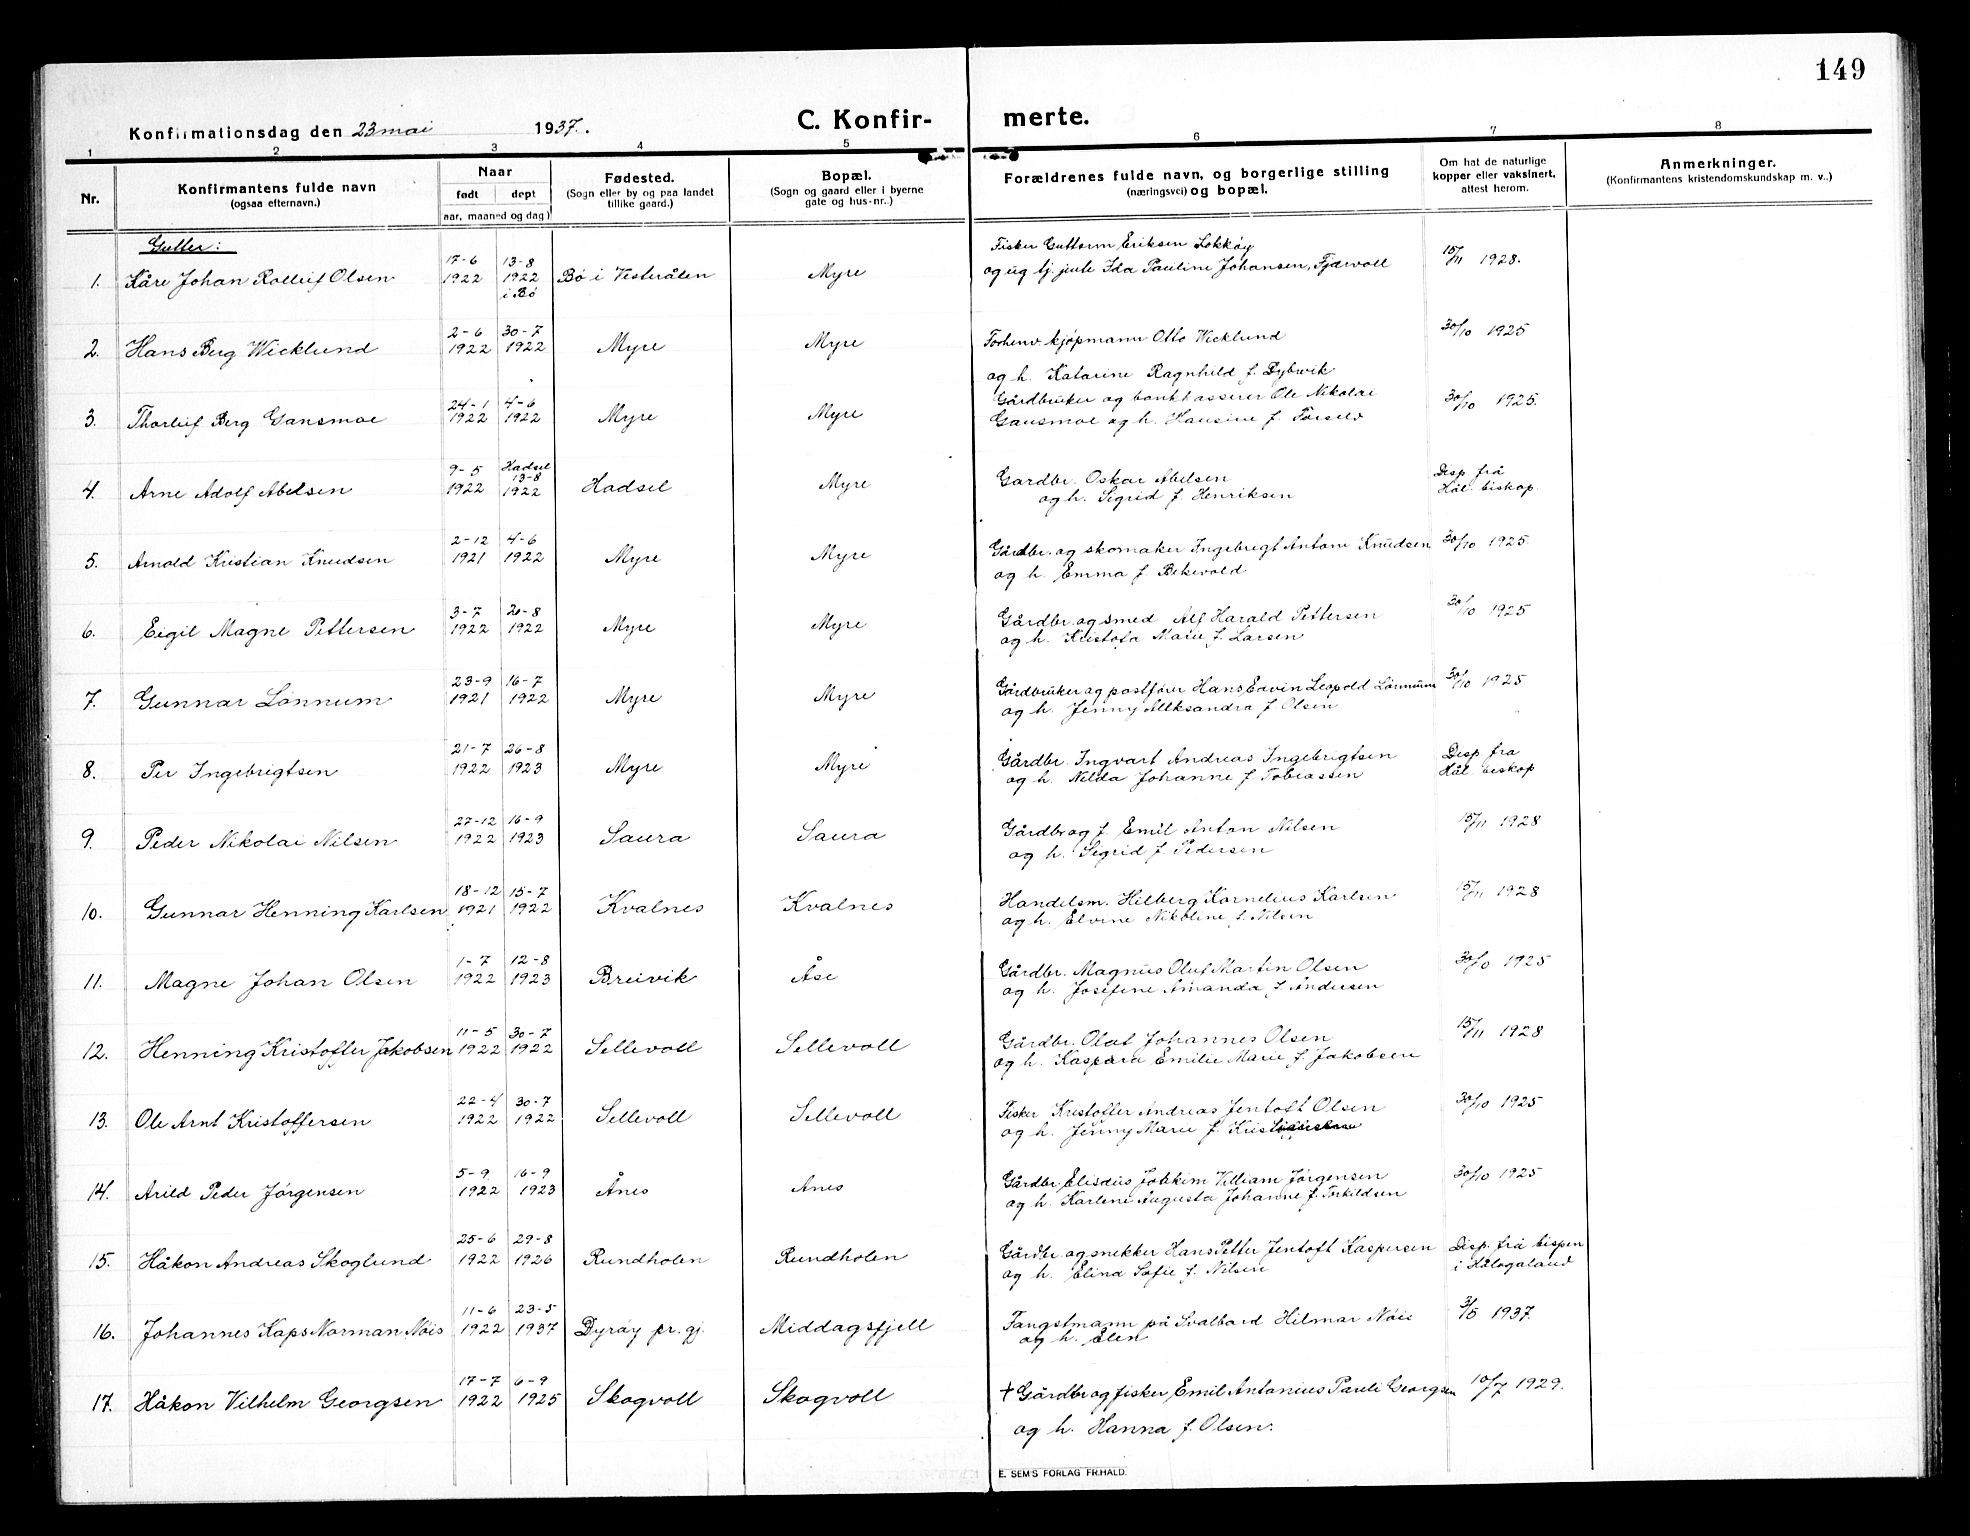 149
Konfirmationsdag den 23 mai 1937.
C. Konfir- merte.
1 2 3 4 5 6 7 8
Nr.
Konfirmantens fulde navn
(ogsaa efternavn.)
Naar
født dept
aar, maaned og dag)
Fødested.
(Sogn eller by og paa landet
tillike gaard.)
Bopæl.
(Sogn og gaard eller i byerne
gate og hus-nr.)
Forældrenes fulde navn, og borgerlige stilling
(næringsvei) og bopæl.
Om hat de naturlige
kopper eller vaksinert,
attest herom.
Anmerkninger.
(Konfirmantens kristendomskundskap m. v..)
Gutter:
17-6 13-8 Fisker Guttorm Eriksen Lokkøy
1. Kåre Johan Rolleif Olsen 1922 1922 Bø i Vesterålen Myre og ug tj. jente Ida Pauline Johansen, Fjærvoll 15/11 1928.
i Bø
2-6 30-7
2. Hans Berg Wicklund 1922 1922 Myre Myre Forhenv. kjøpmann Otto Wicklund 30/10 1925
og h. Katarine Ragnhild f. Dybwik
24-1 4-6 Gårdbruker og bankkasserer Ole Nikolai
3. Thorleif Berg Gansmoe 1922 1922 Myre Myre Gansmoe og h. Hansine f. 30/10 1925.
9-5 Hadsel 13-8 Gardbr. Oskar Abelsen Disp frå
4. Arne Adolf Abelsen 1922 1922 Hadsel Myre og h. Sigrid f. Henriksen Hål. biskop.
2-12 4-6 Gårdbr. og skomaker Ingebrigt Antoni Knudsen 30/10 1925
5. Arnold Kristian Knudsen 1921 1922 Myre Myre og h. Emma f. Bekevold
3-7 20-8 Gårdbr. og smed Alf Harald Pettersen 30/10 1925
6. Eigil Magne Pettersen 1922 1922 Myre Myre og h. Kristofa Marie f. Larsen
23-9 16-7 Gårdbruker og postfører Hans Edvin Leopold Lønnum 30/10 1925
7. Gunnar Lønnum 1921 1922 Myre Myre og h. Jenny Aleksandra f. Olsen
21-7 26-8 Gårdbr. Ingvart Andreas Ingebrigtsen Disp fra
8. Per Ingebrigtsen 1922 1923 Myre Myre og h. Nilda Johanne f. Tobiassen Hål. biskop
27-12 16-9 Gårdbr og f. Emil Anton Nilsen 15/11 1928
9. Peder Nikolai Nilsen 1922 1923 Saura Saura og h. Sigrid f Pedersen
18-12 15-7 Handelsm. Hilberg Kornelius Karlsen 15/11 1928
10. Gunnar Henning Karlsen 1921 1922 Kvalnes Kvalnes og h. Elvine Nikoline f. Nilsen
1-7 12-8 Gårdbr. Magnus Oluf Martin Olsen 30/10 1925
11. Magne Johan Olsen 1922 1923 Breivik Åse og h. Josefine Amanda f Andersen
11-5 30-7 Gårdbr. Olat Johannes Olsen 15/11 1928
12. Henning Kristoffer Jakobsen 1922 1922 Sellevoll Sellevoll og h. Kaspara Emilie Marie f. Jakobsen
22-4 30-7 Fisker Kristoffer Andreas Jentoft Olsen 30/10 1925
13. Ole Arnt Kristoffersen 1922 1922 Sellevoll Sellevoll og h. Jenny Marie f.
5-9 16-9 Gårdbr Elisdus Jobkim Villiam Jørgensen 30/10 1925
14. Arild Peder Jørgensen 1922 1923 Ånes Anes og h. Karlene Augusta Johanne f. Torkildsen
25-6 29-8 Gårdbr og snekker Hans Petter Jentoft Kaspersen Disp. frå bispen
15. Håkon Andreas Skoglund 1922 1926 Rundholen Rundholen og h. Elind Sofie f. Nilsen i Hålogaland
11-6 23-5
16. Johannes Kaps Norman Nøis 1922 1937 Dyrøy pr. gj. Middagsfjell Fangstmann på Svalbard Hilmar Nøis 3/5 1937.
og h. Elen
17-7 6-9
17. Håkon Vilhelm Georgsen 1922 1925 Skogvoll Skogvoll † Gårdbr og fisker, Emil Antonius Pauli Georgsen 10/7 1929.
og h. Hanna f. Olsen.
E. SEM'S FORLAG FR.HALD.